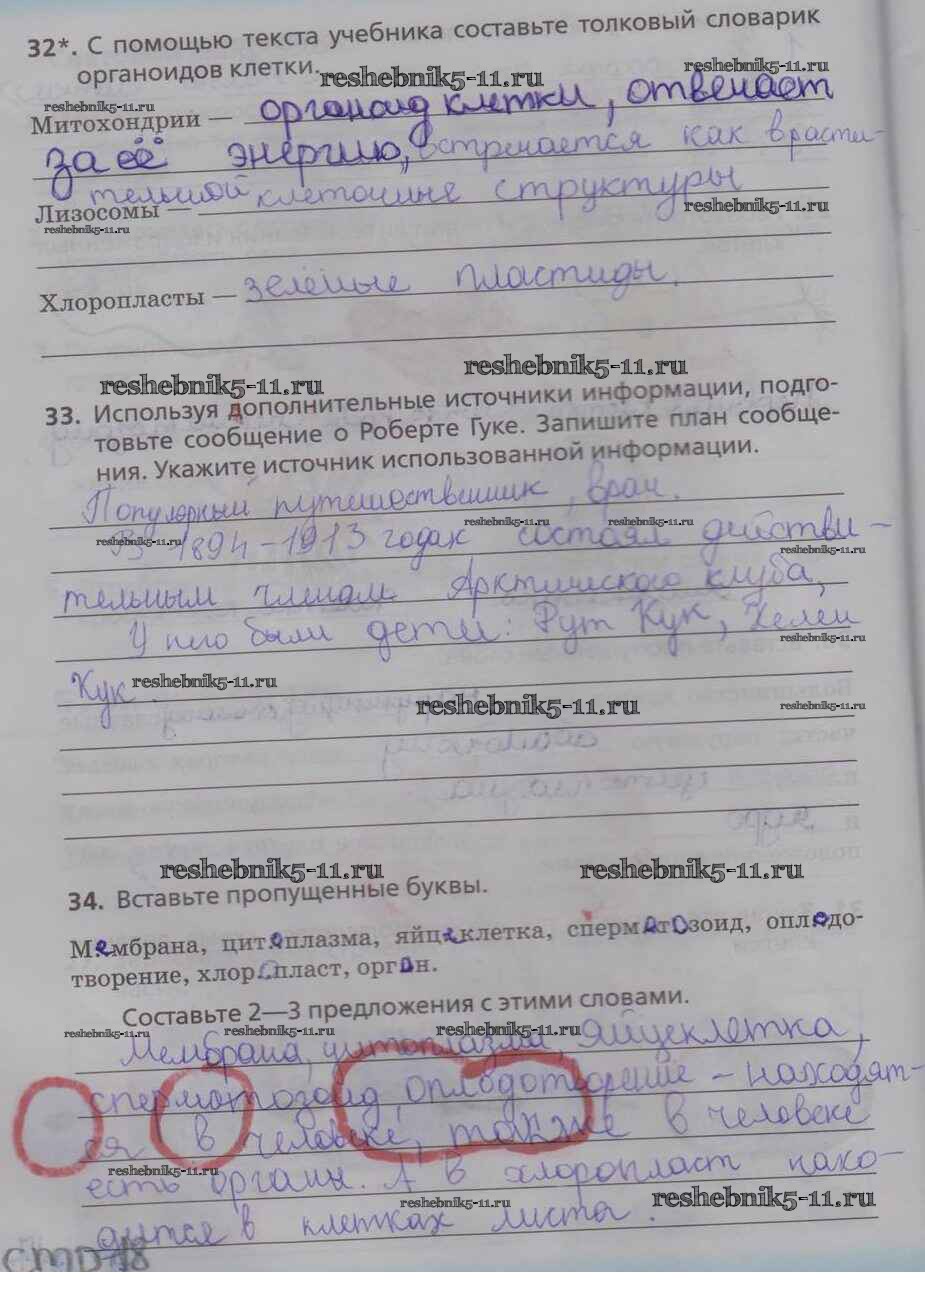 32*. С помощью текста учебника составьте толковый словарик
органоидов клетки. reshebnik5-11.ru reshebnik5-11.ru
reshebnik5-11.ru
Митохондрии — органоид клетки, отвечает
за её энергию, встречается как в расти-
тельной клеточные структуры
Лизосомы — reshebnik5-11.ru
reshebnik5-11.ru
Хлоропласты — зелёные пластиды.
reshebnik5-11.ru reshebnik5-11.ru
33. Используя дополнительные источники информации, подго-
товьте сообщение о Роберте Гуке. Запишите план сообще-
ния. Укажите источник использованной информации.
Популярный путешественник, врач.
reshebnik5-11.ru reshebnik5-11.ru
В 1894-1913 годах состоял действи-
reshebnik5-11.ru reshebnik5-11.ru
тельным членом Арктического клуба,
У него были дети: Рут Кук, Хелен
reshebnik5-11.ru
Кук. reshebnik5-11.ru
reshebnik5-11.ru reshebnik5-11.ru
reshebnik5-11.ru reshebnik5-11.ru
34. Вставьте пропущенные буквы.
Мембрана, цитоплазма, яйцеклетка, сперматозоид, оплодо-
творение, хлоропласт, орган.
Составьте 2—3 предложения с этими словами.
reshebnik5-11.ru reshebnik5-11.ru reshebnik5-11.ru
Мембрана, цитоплазма яйцеклетка,
сперматозоид, оплодотворение - находят-
ся в человеке, также в человеке
reshebnik5-11.ru
есть органы. А в хлоропласт нахо-
reshebnik5-11.ru reshebnik5-11.ru
дится в клетках листа.
стр 18